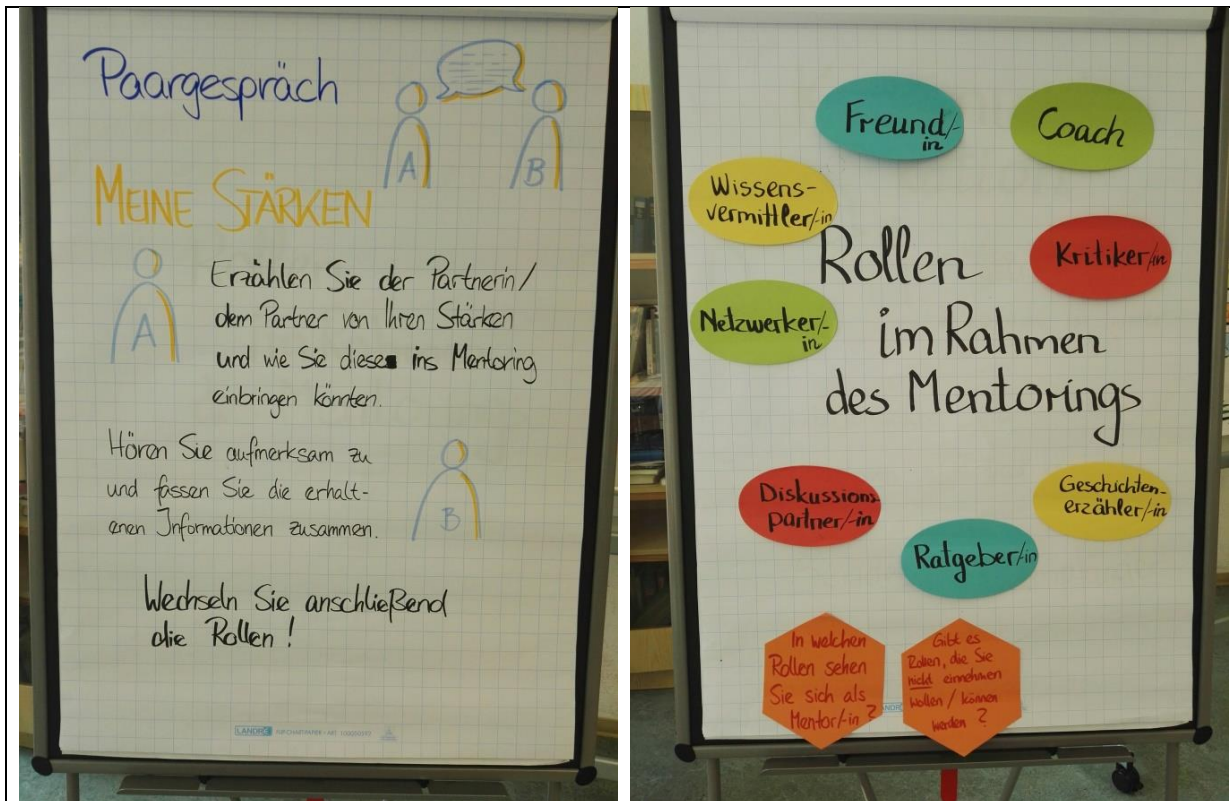 Paargespräch
A
B
MEINE STÄRKEN
A
Erzählen Sie der Partnerin/
dem Partner von Ihren Stärken
und wie Sie diese ins Mentoring
einbringen könnten.
Hören Sie aufmerksam zu
und fassen Sie die erhalt-
enen Informationen zusammen.
B
Wechseln Sie anschließend
die Rollen!
LANDRÉ
Freund/-
in
Coach
Wissens-
vermittler/-in
Kritiker/in
Netzwerker/-
in
Rollen
im Rahmen
des Mentorings
Diskussions-
partner/-in
Geschichten-
erzähler/-in
Ratgeber/in
In welchen
Rollen sehen
Sie sich als
Mentor/-in?
Gibt es
Rollen, die Sie
nicht einnehmen
wollen / können
werden?